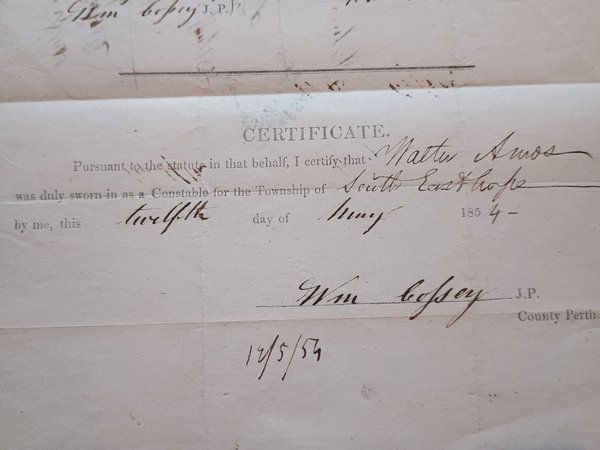 Wm Cossey J.P.
CERTIFICATE.
Pursuant to the statute in that behalf, I certify that Walter Amos
was duly sworn in as a Constable for the Township of South Easthope
by me, this twelfth day of May 1854-
Wm Cossey J.P.
County Perth.
12/5/54